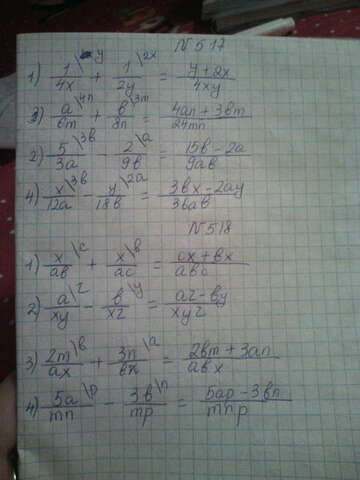 N 517
1) 1\y/4x + 1\2x/2y = y+2x/4xy
3) a\4n/6m + b\3m/8n = 4an+3bm/24mn
2) 5\3b/3a - 2\a/9b = 15b-2a/9ab
4) x\3b/12a - y\2a/18b = 3bx-2ay/36ab
N 518
1) x\c/ab + x\b/ac = cx+bx/abc
2) a\z/xy - b\y/xz = az-by/xyz
3) 2m\b/ax + 3n\a/bx = 2bm+3an/abx
4) 5a\p/mn - 3b\n/mp = 5ap-3bn/mnp